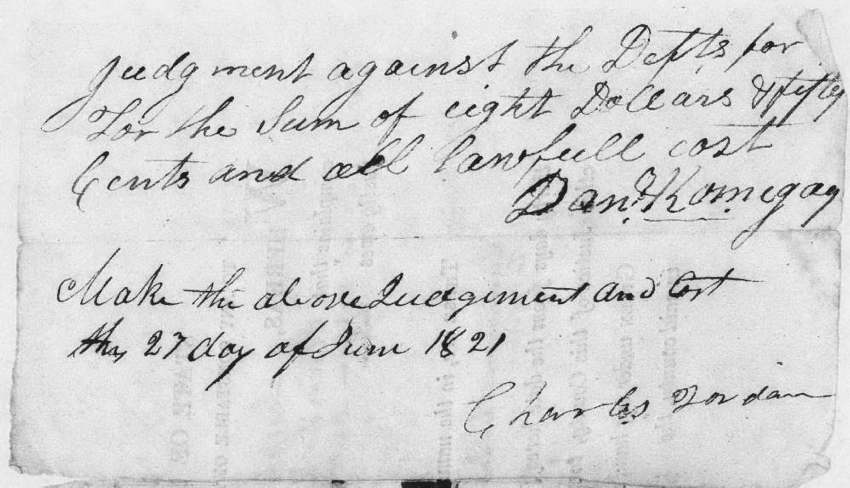 Judgment against the Defts for
For the Sum of eight Dollars & fifty
Cents and all lawfull cost
Danl. Kornegay
Make the above Judgement and Cost
this 27 day of June 1821
Charles Jordan